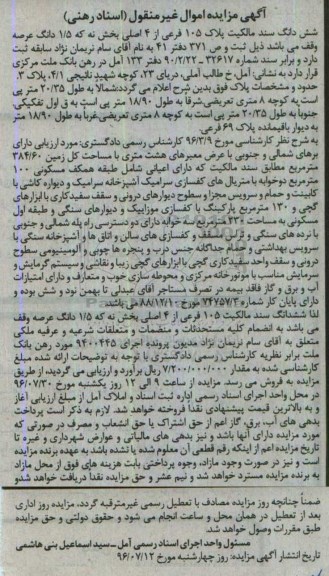 آگهی مزایده اموال غیرمنقول (اسناد رهنی)
شش دانگ سند مالکیت پلاک ۱۰۵ فرعی از ۴ اصلی بخش نه که ۱/۵ دانگ عرصه
وقف می باشد ذیل ثبت و ص ۳۷۱ دفتر ۴۱ به نام آقای سام نریمان نژاد سابقه ثبت
دارد و برابر سند شماره ۳۲۶۱۷ ـ ۹۰/۲/۲۲ دفتر ۱۳۳ آمل در رهن بانک ملت مرکزی
قرار دارد به نشانی: آمل، خ طالب آملی، دریای ۲۳، کوچه شهید نائیجی ۴/۱، پلاک ۳.
حدود و مشخصات پلاک فوق بدین شرح اعلام می گردد: شمالا به طول ۲۰/۳۵ متر پی
است به کوچه ۸ متری شرقا به طول ۱۸/۹۰ متر پی است به ق اول تفکیکی،
جنوبا به طول ۲۰/۳۵ متر پی است به کوچه ۸ متری غربا به طول ۱۸/۹۰ متر
به دیوار باقیمانده پلاک ۶۹ فرعی.
به شرح نظر کارشناسی مورخ ۹۶/۳/۹ کارشناس رسمی دادگستری: مورد ارزیابی دارای
برهای شمالی و جنوبی با عرض معبرهای هشت متری با مساحت کل زمین ۳۸۴/۶۰
مترمربع مطابق سند مالکیت که دارای اعیانی شامل طبقه همکف مسکونی ۱۰۰
مترمربع دوخوابه با متریال های کفسازی سرامیک آشپزخانه سرامیک و دیواره کاشی با
کابینت و حمام و سرویس مجزا و سطوح دیوارهای درونی و سقف سفیدکاری با ابزارهای
گچی و ۱۳۰ مترمربع پارکینگ با کفسازی موزاییک و دیوارهای سنگی و طبقه اول
مسکونی به مساحت ۲۴۳ مترمربع سه خوابه دارای دو دسترسی راه پله شمالی و جنوبی
با نرده های سنگی و تزئین سقف و کفسازی های سالن و اتاق ها و آشپزخانه سنگی با
سرویس بهداشتی و حمام جداگانه جنس درب و پنجره ها چوبی و آلومینیومی سطوح
درونی و سقف واحد سفیدکاری گچی با ابزارهای گچی زیبا و نقاشی و سیستم گرمایش و
سرمایش مناسب با موتورخانه مرکزی و محوطه سازی خوب و متعارف و دارای امتیازات
آب و برق و گاز فاقد بیمه در تصرف مستاجر آقای عبدلی تا بهمن نود و شش بوده و
دارای پایان کار شماره ۲۴۷۵۷/۳ مورخ ۸۸/۱۲/۱ می باشد.
لذا ششدانگ سند مالکیت ۱۰۵ فرعی از ۴ اصلی بخش نه که ۱/۵ دانگ عرصه وقف
می باشد به انضمام کلیه مستحدثات و منضمات و متعلقات شرعیه و عرفیه ملکی
متعلق به آقای سام نریمان نژاد مدیون پرونده اجرای ۹۴۰۰۴۴۵ مورد رهن بانک
ملت برابر نظریه کارشناس رسمی دادگستری با توجه به توضیحات ارائه شده مبلغ
کارشناسی شده به مقدار ۷/۲۰۰/۰۰۰/۰۰۰ ریال برآورد و ارزیابی می گردید، از طریق
مزایده به فروش می رسد. مزایده از ساعت ۹ الی ۱۲ روز یکشنبه مورخ ۹۶/۰۷/۳۰
در محل واحد اجرای اسناد رسمی اداره ثبت اسناد و املاک آمل از مبلغ ارزیابی آغاز
و به بالاترین قیمت پیشنهادی نقدا فروخته خواهد شد. لازم به ذکر است پرداخت
بدهی های آب، برق، گاز اعم از حق اشتراک یا حق انشعاب و مصرف در صورتی که
مورد مزایده دارای آنها باشد و نیز بدهی های مالیاتی و عوارض شهرداری و غیره تا
تاریخ مزایده اعم از اینکه رقم قطعی آن معلوم شده یا نشده باشد به عهده برنده مزایده
است و نیز در صورت وجود مازاد، وجوه پرداختی بابت هزینه های فوق از محل مازاد
به برنده مزایده مسترد خواهد شد و نیم عشر و حق مزایده نقدا دریافت خواهد شد و
ضمنا چنانچه روز مزایده مصادف با تعطیل رسمی غیرمترقبه گردد، مزایده روز اداری
بعد از تعطیل در همان محل و ساعت انجام می شود و حقوق دولتی و حق مزایده
طبق مقررات وصول خواهد شد.
مسئول واحد اجرای اسناد رسمی آمل ـ سید اسماعیل بنی هاشمی
تاریخ انتشار آگهی مزایده: روز چهارشنبه مورخ ۹۶/۰۷/۱۲